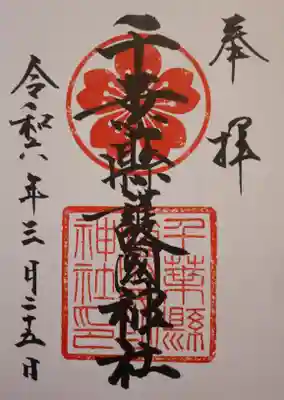 奉拝
千葉縣護國神社
令和六年三月二十五日
千葉縣
神社印